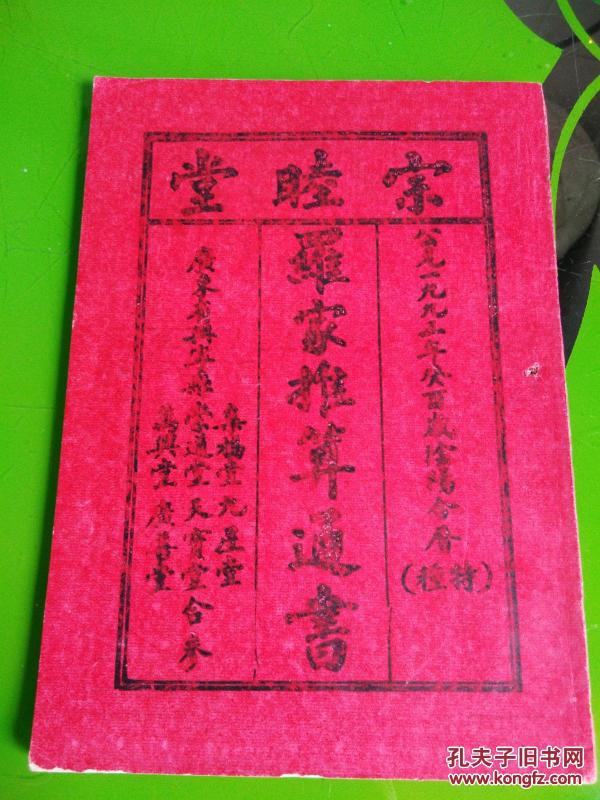 宗睦堂
公元一九九三年癸酉歲陰陽合曆(特種)
羅家推算通書
廣東省縣崇道堂天寶堂合參
集福堂九星堂
萬興堂廣善堂
孔夫子旧书网
www.kongfz.com